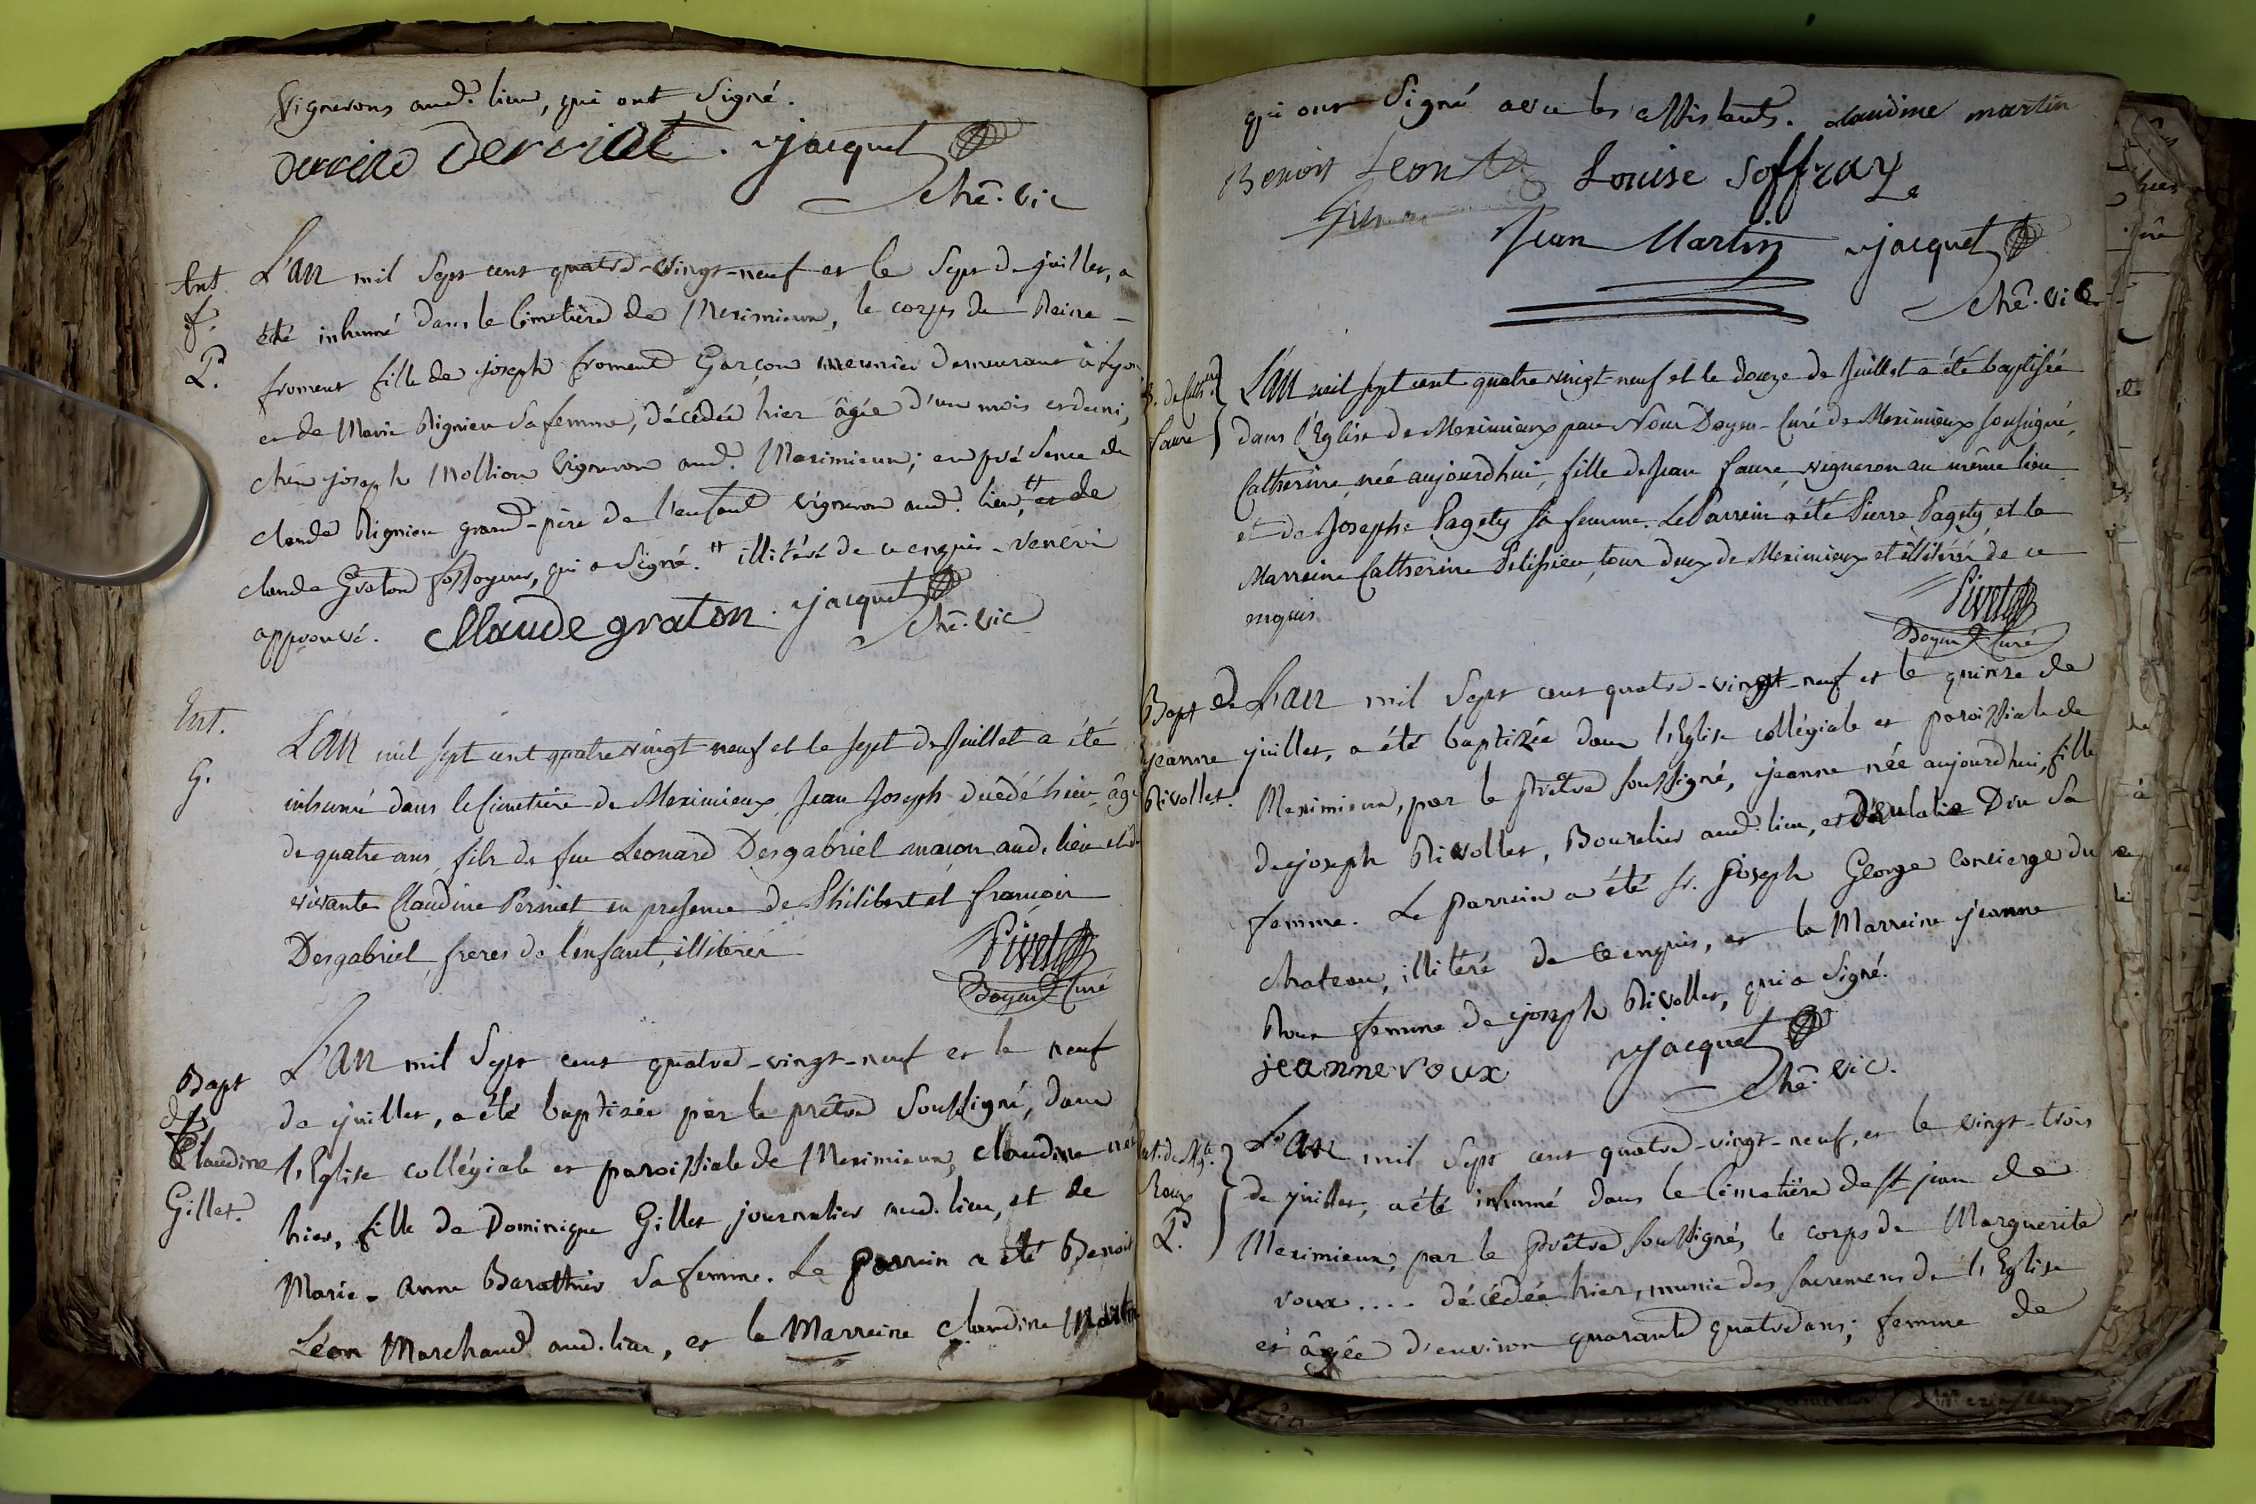 vignerons aud.t lieu, qui ont signé.
derriat jacquet
chê. vic
Ent. L'an mil sept cent quatre-vingt-neuf et le sept de juillet, a
f. été inhumé dans le Cimetière de Meximieux, le corps de Reine
P.d froment fille de joseph froment Garçon meunier demeurant à Lyon
et de Marie Rignieu sa femme, décédée hier âgée d'un mois et demi,
chéz joseph Mollion vigneron aud.t Meximieux; en présence de
claude Rignieu grand-père de l'enfant vigneron aud.t lieu, tt et de
claude Graton fossoyeur, qui a signé. tt illitéré de ce enquis
approuvé. Claude graton jacquet
chê. vic
Ent. L'an mil sept cent quatre vingt neuf et le sept de Juillet a été
G. inhumé dans le Cimetiere de Meximieux Jean Joseph decédé hier, âgé
de quatre ans, fils de feu Leonard Desgabriel maçon aud. lieu et de
vivante Claudine Perniet en presence de Philibert et françois
Desgabriel, freres de l'enfant, illiterés
Pivet
Doyen Curé
Bapt L'an mil sept cent quatre-vingt-neuf et le neuf
de de juillet, a été baptisée par le prêtre soussigné, dans
Claudine l'Eglise collégiale et paroissiale de Meximieux, claudine née
Gillet. hier, fille de Dominique Gillet journalier aud. lieu, et de
Marie-Anne Barathier sa femme. Le parrein a été Benoit
Léon Marchand aud. lieu, et la Marreine claudine Martin
qui ont signé avec les assistants. claudine martin
Benoit Leon Louise Soffray
Jean Martin jacquet
chê. vic
B. de Cath.ne L'an mil sept cent quatre vingt-neuf et le douze de Juillet a été baptisée
faure dans l'Eglise de Meximieux par Nous Doyen-Curé de Meximieux soussigné,
Catherine, née aujourdhui, fille de Jean faure, vigneron au même lieu
et de Josephe Pagety sa femme. Le Parrein a été Pierre Pagety et la
Marreine Catherine Pelissieu, tous deux de Meximieux et illitéré de ce
enquis.
Pivet
Doyen Curé
Bapt de L'an mil sept cent quatre-vingt-neuf et le quinze de
jeanne juillet, a été baptizée dans l'Eglise collégiale et paroissiale de
Rivollet. Meximieux, par le prêtre soussigné, jeanne née aujourdhui, fille
de joseph Rivollet, Bourelier aud.t lieu, et d'eulalie Dru sa
femme. Le parrein a été sr. joseph George concierge du
chateau, illitéré de ce enquis, et la Marreine jeanne
Roux femme de joseph Rivollet, qui a signé.
jeanne roux jacquet
chê. vic.
Ent. de Mg.te L'an mil sept cent quatre-vingt-neuf, et le vingt-trois
Roux de juillet, a été inhumé dans le Cimetière de st jean de
P.d Meximieux, par le prêtre soussigné, le corps de Marguerite
roux .... décédée hier, munie des sacremens de l'Eglise
et âgée d'environ quarante quatre ans; femme de